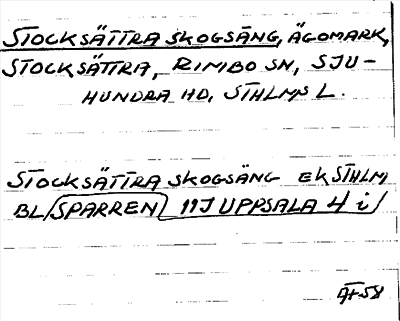 STOCKSÄTTRA SKOGSÄNG, ÄGOMARK,
STOCKSÄTTRA, RIMBO SN, SJU-
HUNDRA HD, STHLMS L.
STOCKSÄTTRA SKOGSÄNG EK STHLM
BL SPARREN 11J UPPSALA 4 i
ÄF58